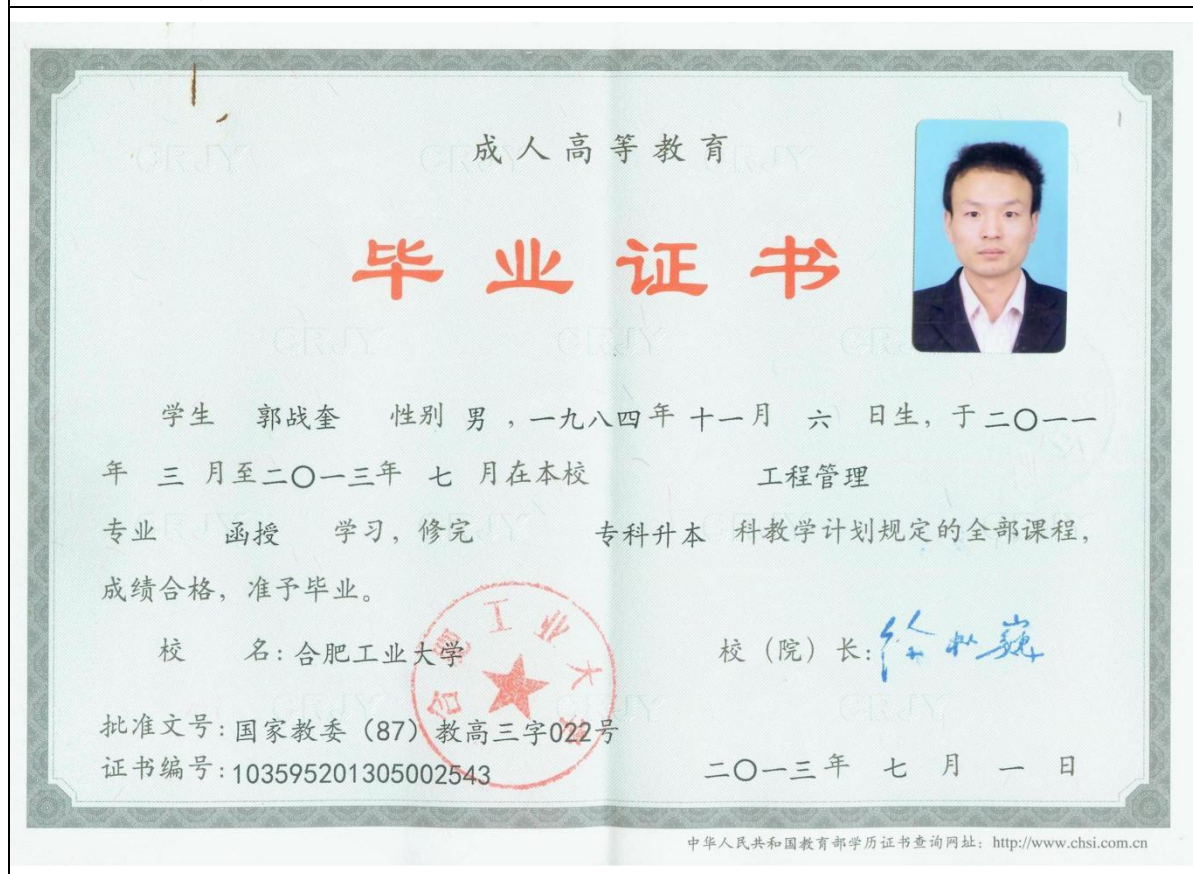 成人高等教育
毕业证书
学生 郭战奎 性别 男，一九八四年 十一月 六 日生，于二〇一一
年 三 月至二〇一三年 七 月在本校 工程管理
专业 函授 学习，修完 专科升本 科教学计划规定的全部课程，
成绩合格，准予毕业。
校 名：合肥工业大学 校（院）长：徐枞巍
合肥工业大学
批准文号：国家教委（87）教高三字022号
证书编号：103595201305002543 二〇一三年 七 月 一 日
中华人民共和国教育部学历证书查询网址：http://www.chsi.com.cn
CRJY CRJY CRJY CRJY
CRJY CRJY CRJY